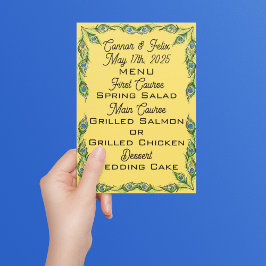 Connor & Felix
May 17th, 2025
MENU
First Course
Spring Salad
Main Course
Grilled Salmon
or
Grilled Chicken
Dessert
Wedding Cake